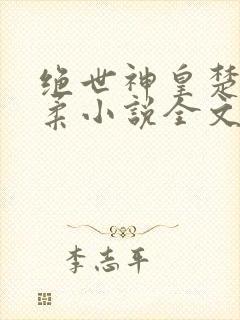 绝世神皇楚
柔小说全文
李志平